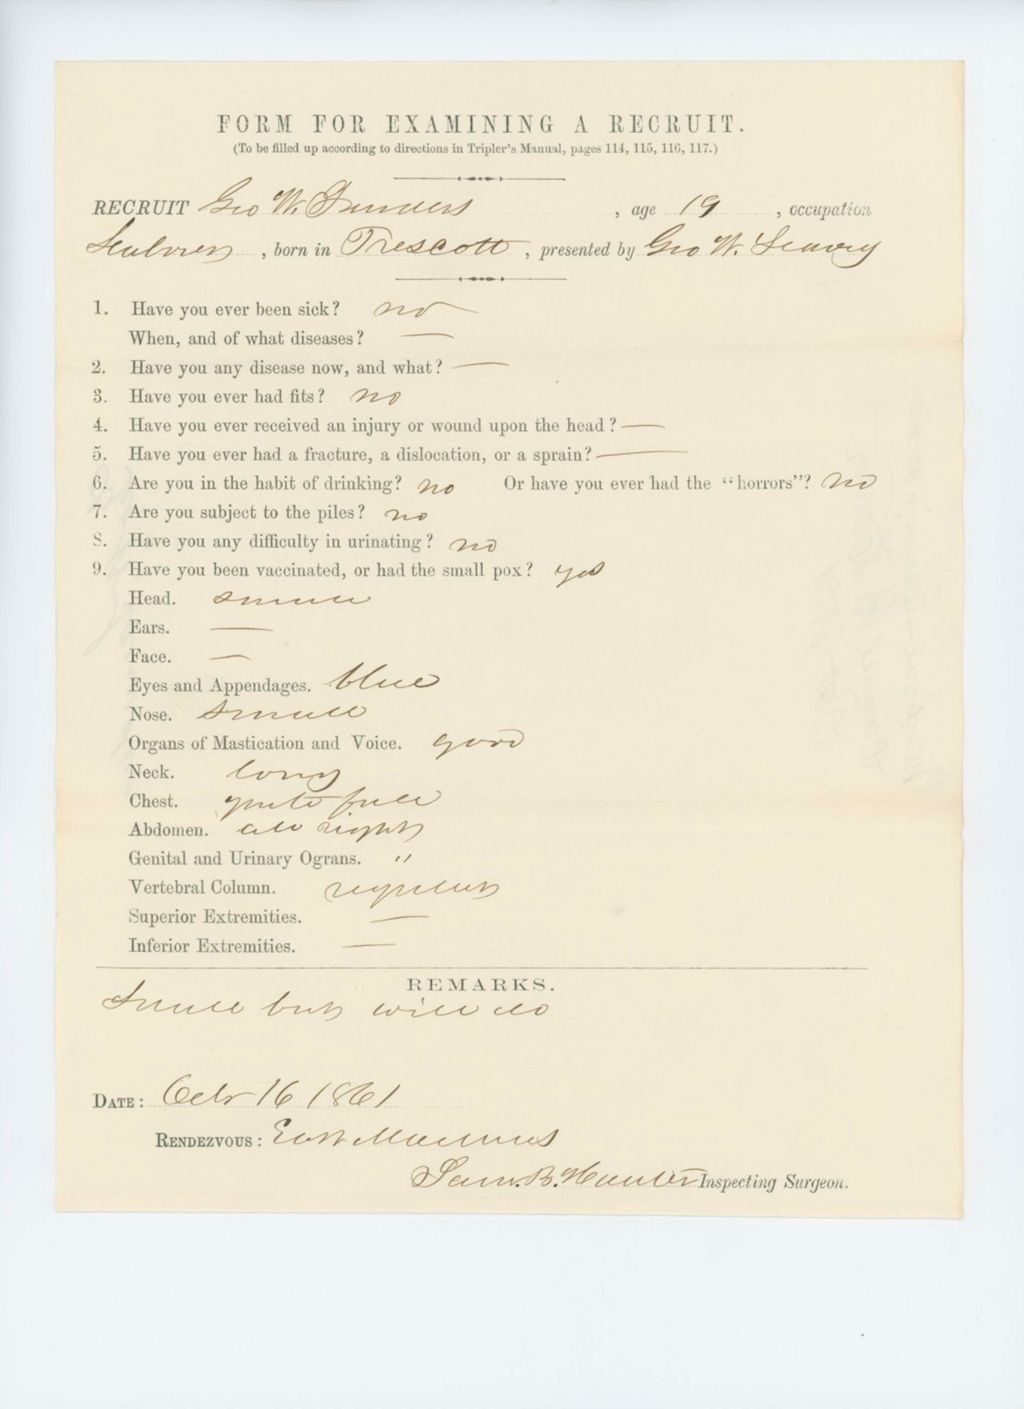 FORM FOR EXAMINING A RECRUIT.
(To be filled up according to directions in Tripler's Manual, pages 114, 115, 116, 117.)
RECRUIT Geo W. , age 19 , occupation
, born in Trescott , presented by Geo W. Seavey
1. Have you ever been sick? no —
When, and of what diseases? —
2. Have you any disease now, and what? —
3. Have you ever had fits? no
4. Have you ever received an injury or wound upon the head? —
5. Have you ever had a fracture, a dislocation, or a sprain? —
6. Are you in the habit of drinking? no Or have you ever had the "horrors"? no
7. Are you subject to the piles? no
8. Have you any difficulty in urinating? no
9. Have you been vaccinated, or had the small pox? yes
Head. small
Ears. —
Face. —
Eyes and Appendages. blue
Nose. small
Organs of Mastication and Voice. good
Neck. long
Chest. quite full
Abdomen. all right
Genital and Urinary Ograns. "
Vertebral Column. regular
Superior Extremities. —
Inferior Extremities. —
REMARKS.
Small but will do
DATE: Octr 16 1861
RENDEZVOUS: East Machias
Sam. B. Hunter Inspecting Surgeon.